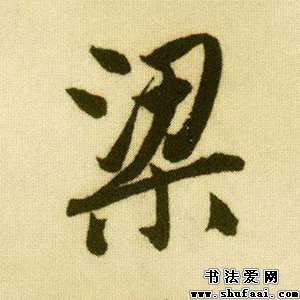 梁
书法爱网
www.shufaai.com